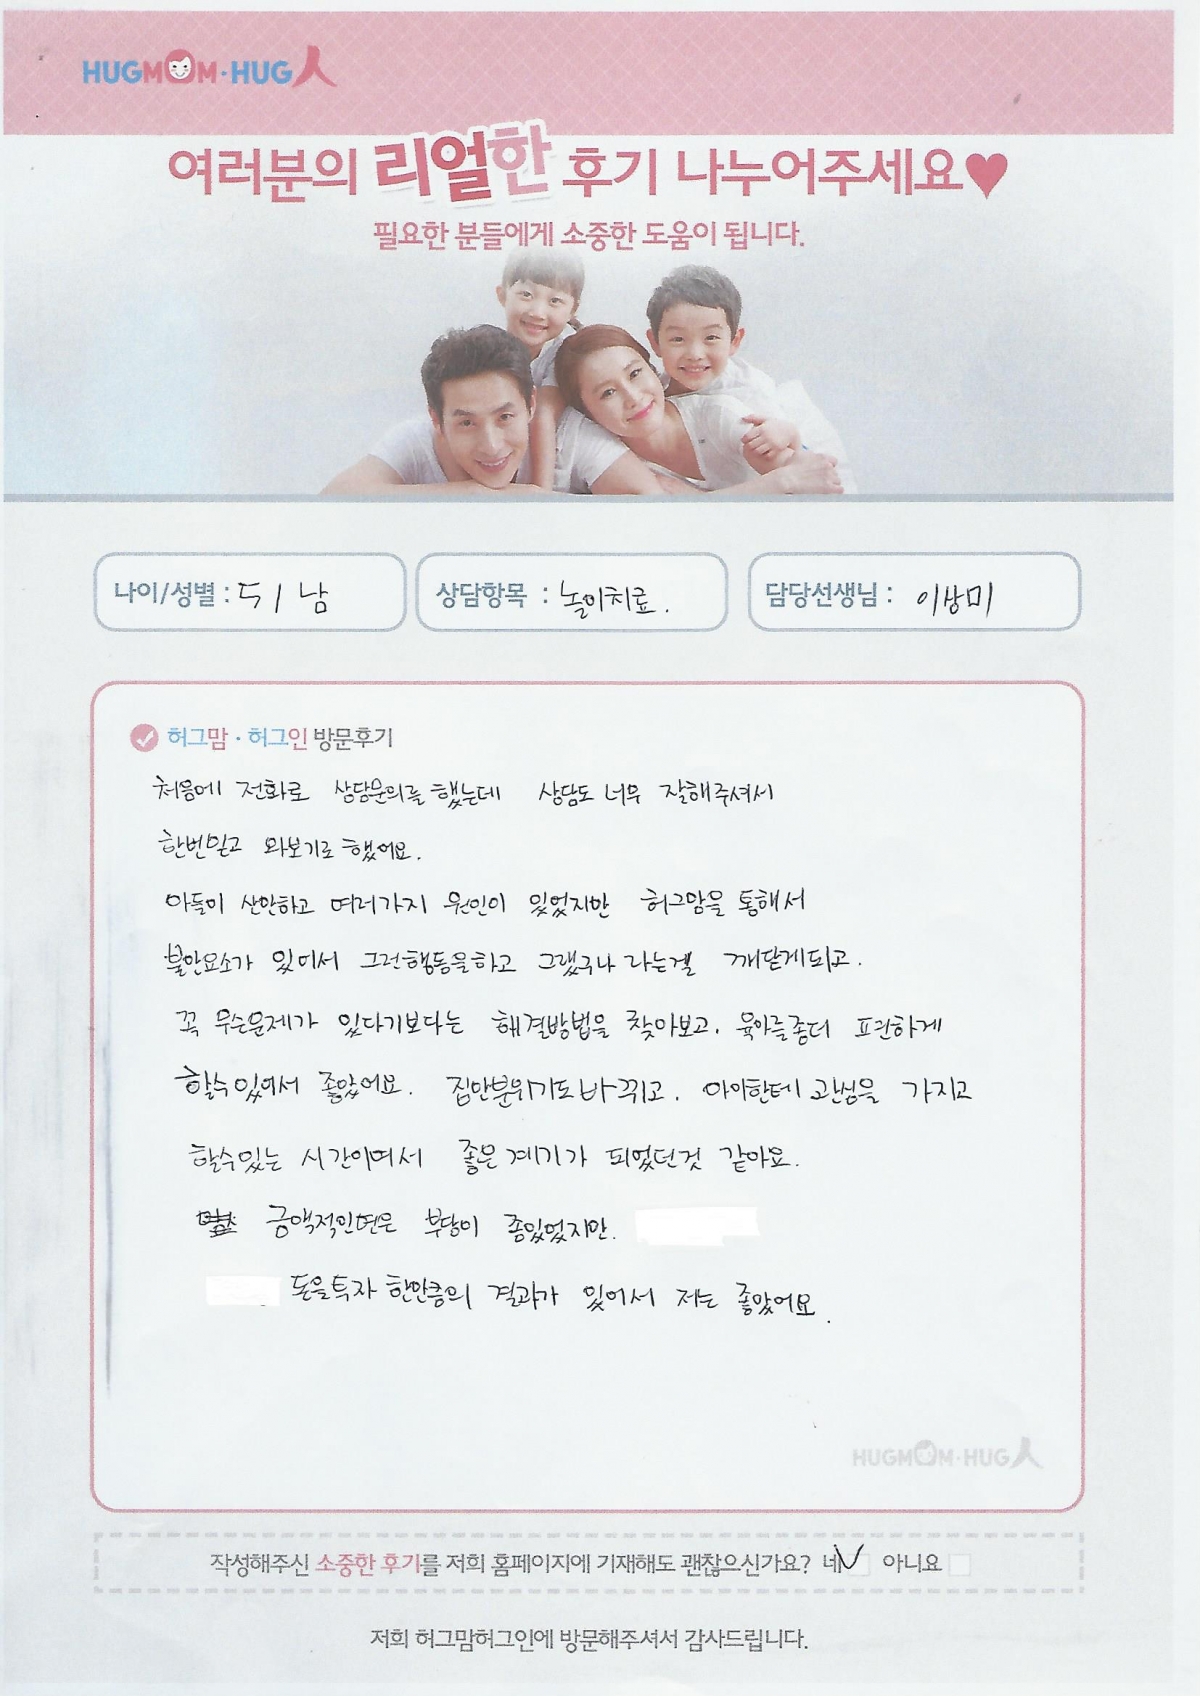 HUGMOM·HUG人
여러분의 리얼한 후기 나누어주세요♥
필요한 분들에게 소중한 도움이 됩니다.
나이/성별 : 5 / 남 상담항목 : 놀이치료. 담당선생님 : 이상미
허그맘·허그인 방문후기
처음에 전화로 상담문의를 했는데 상담도 너무 잘해주셔서
한번믿고 와보기로 했어요.
아들이 산만하고 여러가지 원인이 있었지만 허그맘을 통해서
불안요소가 있어서 그런행동을하고 그랬구나 라는걸 깨닫게되고.
꼭 무슨문제가 있다기보다는 해결방법을 찾아보고, 육아를좀더 편하게
할수있어서 좋았어요. 집안분위기도 바뀌고. 아이한테 관심을 가지고
할수있는 시간이여서 좋은 계기가 되었던것 같아요.
금액적인면은 부담이 좀있었지만.
돈을투자 한만큼의 결과가 있어서 저는 좋았어요.
HUGMOM·HUG人
작성해주신 소중한 후기를 저희 홈페이지에 기재해도 괜찮으신가요? 네 아니요
저희 허그맘허그인에 방문해주셔서 감사드립니다.